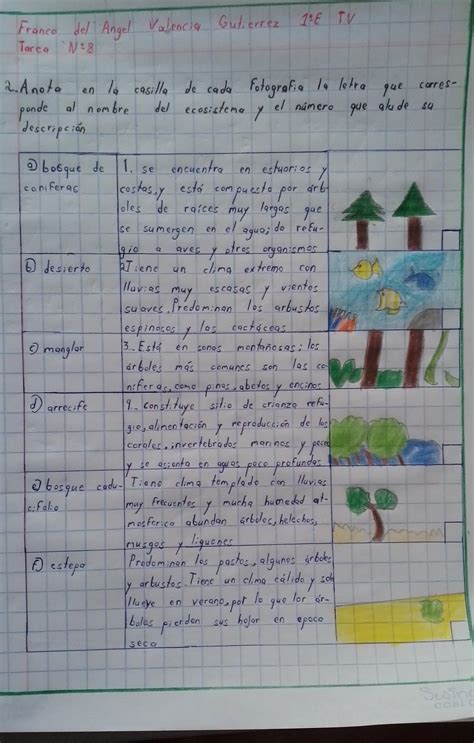 Franco del Angel Valencia Gutierrez 1°E TV
Tarea N°8
2. Anota en la casilla de cada fotografia la letra que corres-
ponde al nombre del ecosistema y el número que alude su
descripción
a) bosque de
coniferas
1. se encuentra en estuarios y
costas, y está compuesto por árb
oles de raíces muy largas que
se sumergen en el agua; da refu-
gio a aves y otros organismos
b) desierto
2. Tiene un clima extremo con
lluvias muy escasas y vientos
suaves. Predominan los arbustos
espinosos y las cactáceas
c) manglar
3. Está en zonas montañosas; los
árboles más comunes son las co
níferas, como pinos, abetos y encinos
d) arrecife
4. Constituye sitio de crianza refu-
gio, alimentación y reproducción de los
corales, invertebrados marinos y peces
y se asienta en aguas poco profundas
e) bosque cadu-
cifolio
Tiene clima templado con lluvias
muy frecuentes y mucha humedad at-
mosferica abundan árboles, helechos,
musgos y liquenes
f) estepa
Predominan los pastos, algunos árboles
y arbustos. Tiene un clima cálido y solo
llueve en verano, por lo que los ár-
boles pierden sus hojas en epoca
seca